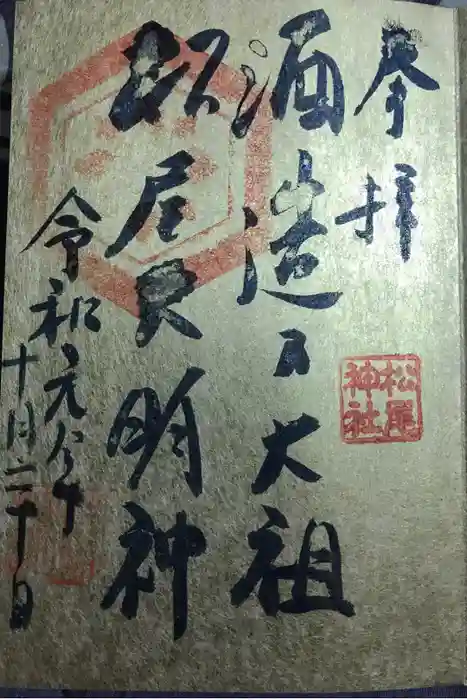 奉拝
酒造大祖
松尾大明神
令和元年
十月二十日
松尾
神社